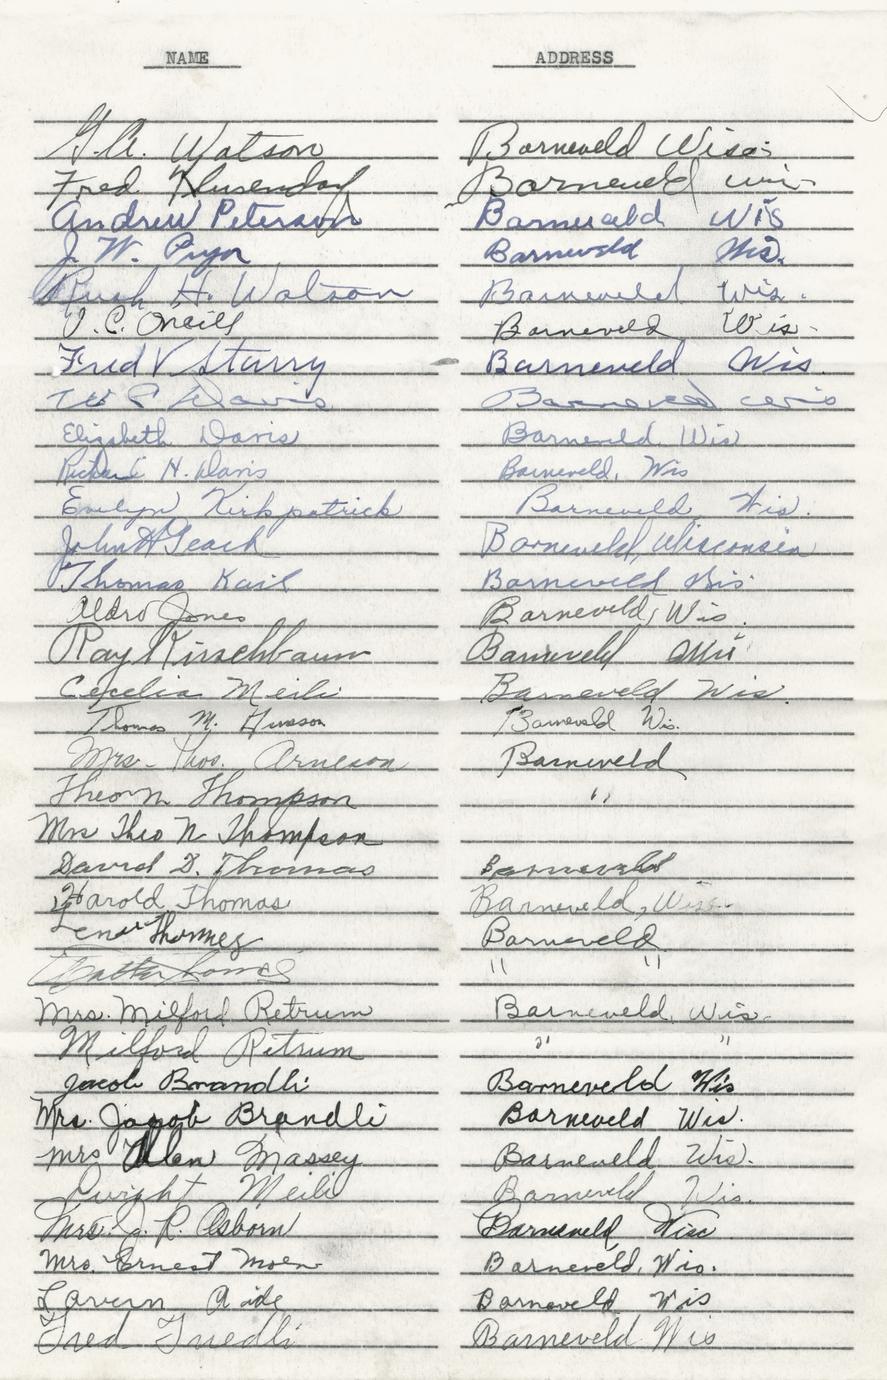 NAME ADDRESS
G.A. Watson Barneveld Wisc.
Fred Barneveld Wis
Andrew Peterson Barneveld Wis
J. W. Pryor Barneveld Wis.
Ruth H. Watson Barneveld Wis.
J. C. O'Neill Barneveld Wis.
Fred V Starry Barneveld Wis.
Davis Barneveld Wis
Elizabeth Davis Barneveld. Wis
Richard H. Davis Barneveld, Wis
Evelyn Kirkpatrick Barneveld Wis.
John H Geach Barneveld, Wisconsin
Thomas Kail Barneveld Wis.
Aldro Jones Barneveld, Wis.
Ray Kirschbaum Barneveld Wis
Cecelia Meili Barneveld Wis.
Thomas M. Barneveld Wis.
Mrs. Thos. Arneson Barneveld
Theo N Thompson "
Mrs Theo N Thompson
David D. Thomas Barneveld
Harold Thomas Barneveld, Wisc.
Lena Barneveld
" "
Mrs. Milford Retrum Barneveld, Wis.
Milford Retrum " "
Jacob Brandli Barneveld Wis
Mrs. Jacob Brandli Barneveld Wis.
Mrs Allen Massey Barneveld Wis.
Dwight Meili Barneveld Wis.
Mrs. J. R. Osborn Barneveld Wisc
Mrs. Ernest Moen Barneveld, Wis.
Lavern Aide Barneveld Wis
Fred Friedli Barneveld Wis